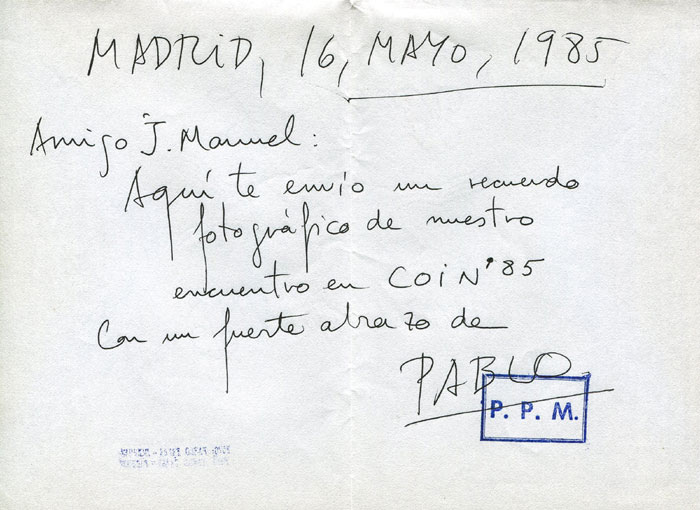 MADRID, 16, MAYO, 1985
Amigo J. Manuel:
Aquí te envío un recuerdo
fotográfico de nuestro
encuentro en COIN'85
Con un fuerte abrazo de
PABLO.
P. P. M.